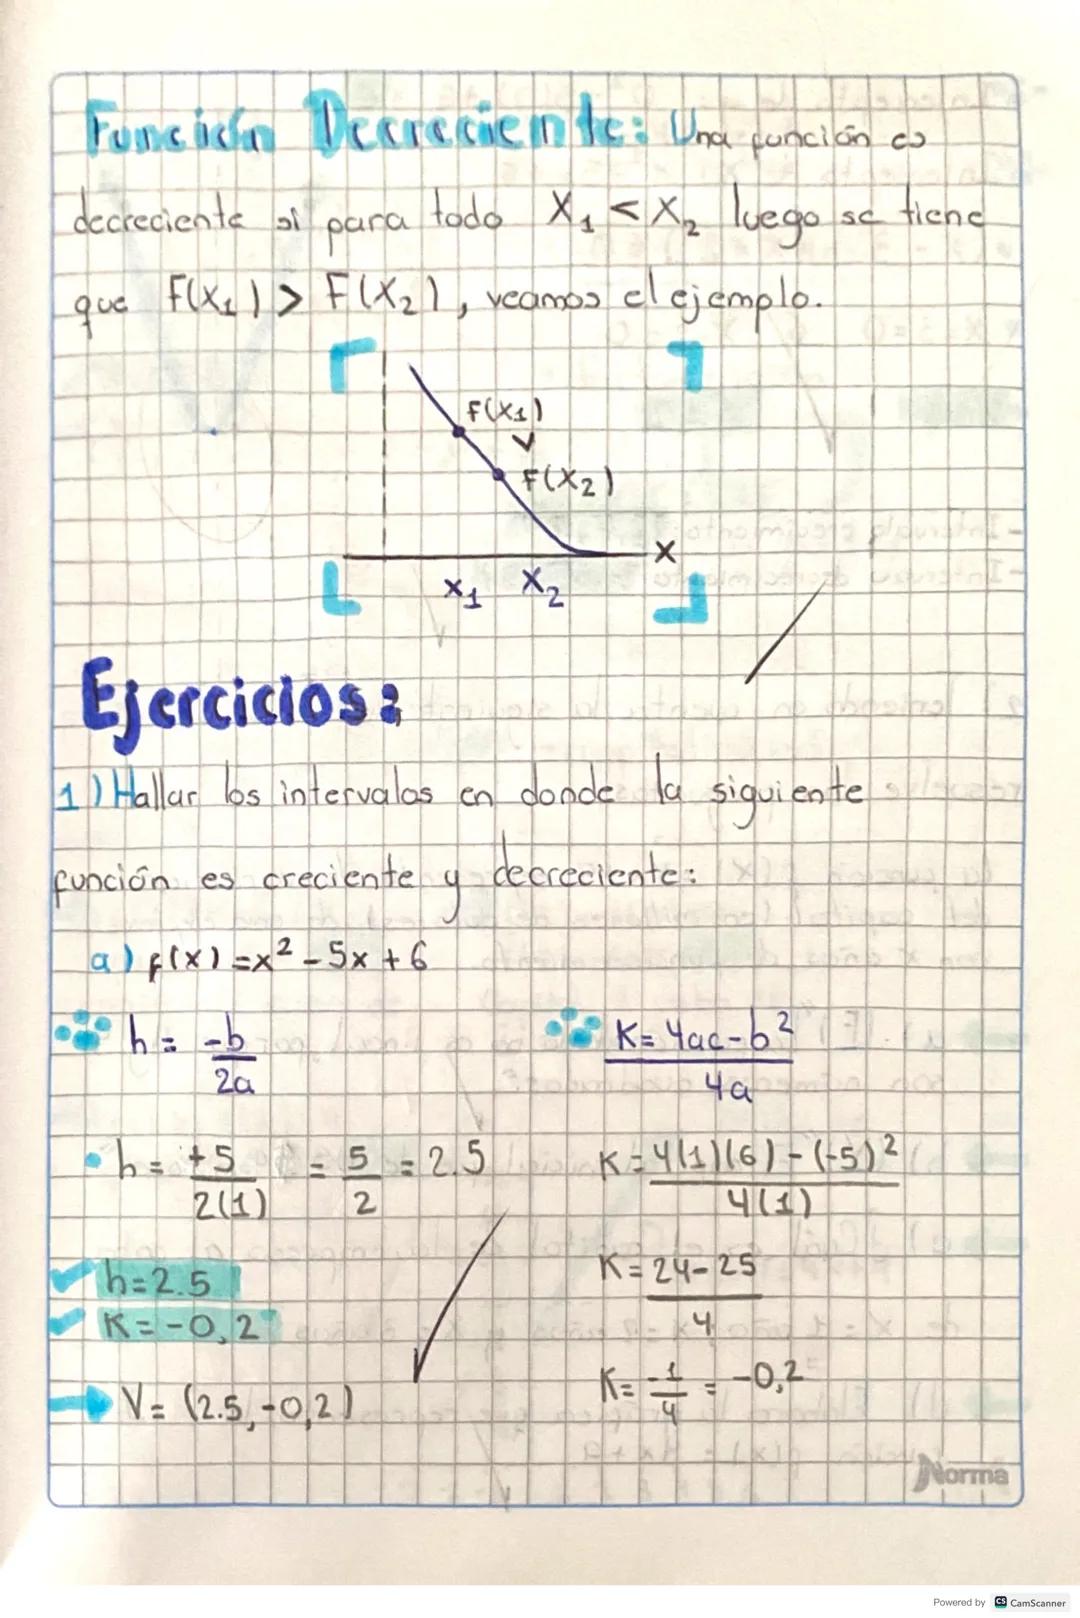 Función Decreciente: Una función es
decreciente si para todo X₁ < X₂ luego se tiene
que F(X₁) > F(X₂), veamos el ejemplo.
F(X₁)
V
F(X₂)
X
X₁ X₂
Ejercicios:
1) Hallar los intervalos en donde la siguiente
función es creciente y decreciente:
a) f(x) = x² - 5x + 6
h = -b/2a
K = 4ac-b²/4a
h = +5/2(1) = 5/2 = 2.5
K = 4(1)(6) - (-5)²/4(1)
K = 24-25/4
h = 2.5
K = -0,2
K = -1/4 = -0,2
V = (2.5, -0,2)
Norma
Powered by CS CamScanner